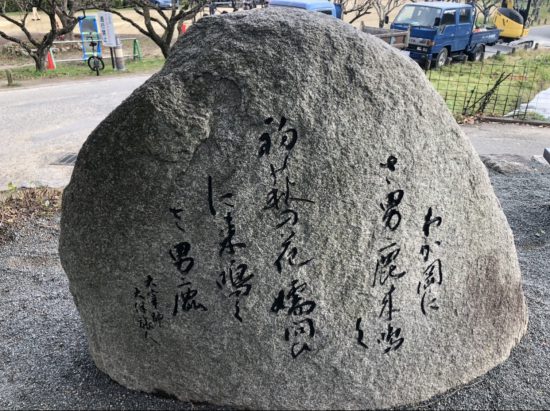 わか岡に
さ男鹿来鳴く
初萩の花嬬問ひ
に来鳴く
さ男鹿
大宰帥
大伴旅人